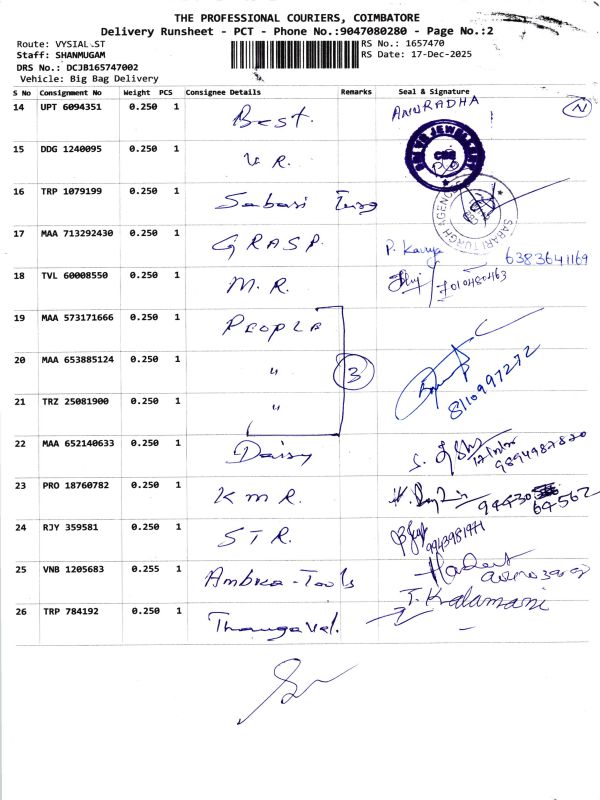 THE PROFESSIONAL COURIERS, COIMBATORE
Delivery Runsheet - PCT - Phone No.:9047080280 - Page No.:2
Route: VYSIAL ST RS No.: 1657470
Staff: SHANMUGAM RS Date: 17-Dec-2025
DRS No.: DCJB165747002
Vehicle: Big Bag Delivery
S No Consignment No Weight PCS Consignee Details Remarks Seal & Signature
14 UPT 6094351 0.250 1 Best. ANURADHA N
15 DDG 1240095 0.250 1 V R.
16 TRP 1079199 0.250 1 Sabari Turg
SABARI TURGH AGENC
17 MAA 713292430 0.250 1 GRASP. P. Kavya 6383641169
18 TVL 60008550 0.250 1 M. R. 7010480463
19 MAA 573171666 0.250 1 PEOPLE
20 MAA 653885124 0.250 1 " 3
8110997272
21 TRZ 25081900 0.250 1 "
22 MAA 652140633 0.250 1 Daisy
9894987820
23 PRO 18760782 0.250 1 K M R. 94430
64562
24 RJY 359581 0.250 1 S T R. 9943981971
25 VNB 1205683 0.255 1 Ambica-Tools
26 TRP 784192 0.250 1 Thangavel. T. Kalamani